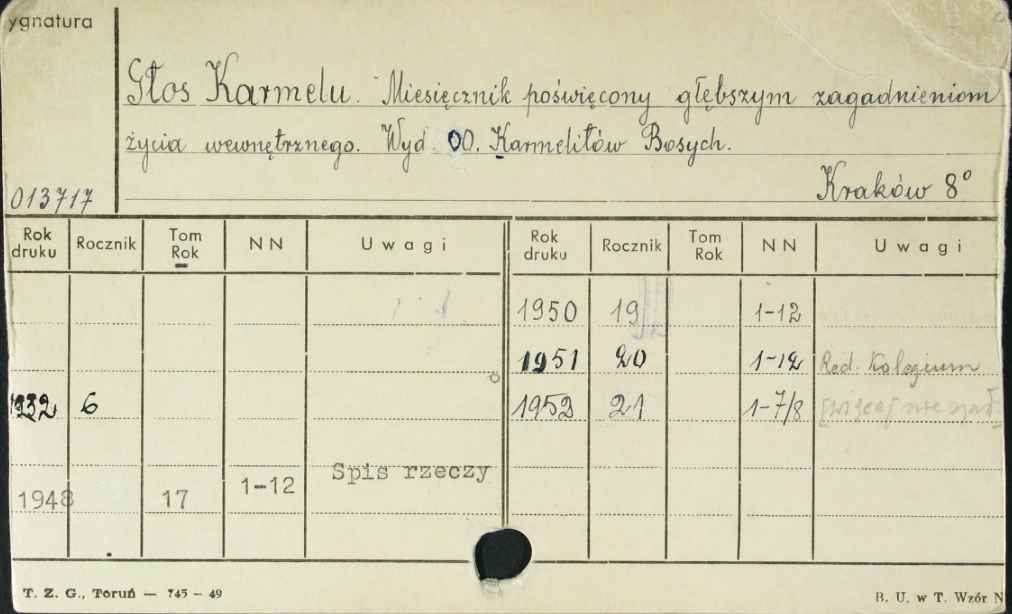 ygnatura
Głos Karmelu. Miesięcznik poświęcony głębszym zagadnieniom
życia wewnętrznego. Wyd. OO. Karmelitów Bosych.
013717 Kraków 8°
Rok druku Rocznik Tom Rok NN Uwagi Rok druku Rocznik Tom Rok NN Uwagi
1950 19 1-12
1951 20 1-12 Red. Kolegium
1932 6 1952 21 1-7/8 [więcej nie
1948 17 1-12 Spis rzeczy
T. Z. G., Toruń — 745 - 49 B. U. w T. Wzór N